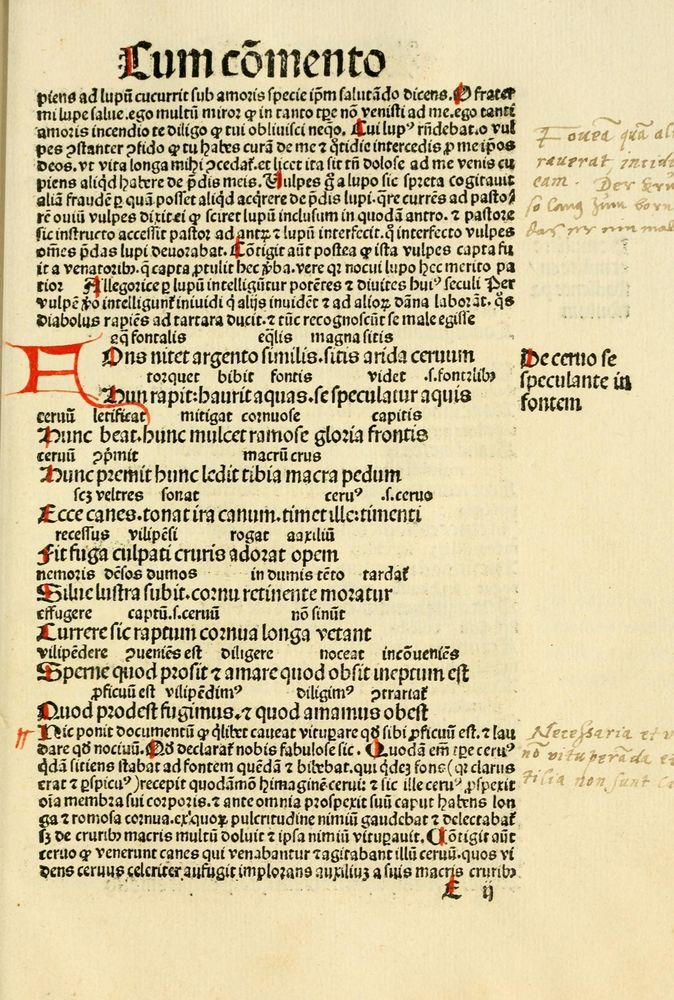 Cum cōmento
piens ad lupū cucurrit sub amoris specie ipm̄ salutādo dicens. O frater
mi lupe salue. ego multū miror ꝙ in tanto tp̄e nō venisti ad me. ego tanti
amoris incendio te diligo ꝙ tui obliuisci neqo. Cui lupꝰ rn̄debat. o vul
pes ꝯstanter ꝯfido ꝙ tu habes curā de me ⁊ qͦtidie intercedis ꝓ me ip̄os
deos. vt vita longa mihi ꝯcedat̄. et licet ita sit tn̄ dolose ad me venis cu
piens aliqd habere de p̄dis meis. Vulpes ḡ a lupo sic spreta cogitauit
aliā fraudē ꝑ quā posset aliqd acqrere de p̄dis lupi. qre currēs ad pastoꝛē
rē ouiū vulpes dixit ei ꝙ sciret lupū inclusum in quodā antro. ⁊ pastore
sic instructo accessit pastor ad antꝝ ⁊ lupū interfecit. q̄ interfecto vulpes
om̄es p̄das lupi deuorabat. Cōtigit aūt postea ꝙ ista vulpes capta fu
it a venatoribꝰ. q̄ capta ꝓtulit hec ꝟba. vere qꝛ nocui lupo hec merito pa
tior Allegorice ꝑ lupū intelligūtur potētes ⁊ diuites huiꝰ seculi Per
vulpē ꝟo intelligunt̄ inuidi q̄ alijs inuidēt ⁊ ad alioꝝ dāna laborāt. q̄s
diabolus rapiēs ad tartara ducit. ⁊ tūc recognoscūt se male egisse
aq̄ fontalis eq̄lis magna sitis
FOns nitet argento similis. sitis arida ceruum
torquet bibit fontis videt .s. fontalibꝰ
Hun rapit: haurit aquas. se speculatur aquis
De ceruo se
speculante in
fontem
ceruū letificat mitigat cornuose capitis
Hunc beat. hunc mulcet ramose gloria frontis
ceruū ꝯp̄mit macrū crus
Hunc premit hunc ledit tibia macra pedum
scꝫ veltres sonat ceruꝰ .s. ceruo
Ecce canes. tonat ira canum. timet ille: timenti
recessus vilipēsi rogat auxiliū
Fit fuga culpati cruris adorat opem
nemoris dēsos dumos in dumis tēto tardat̄
Silue lustra subit. cornu retinente moratur
effugere captū .s. ceruū nō sinūt
Currere sic raptum cornua longa vetant
vilipēdere ꝯueniēs est diligere noceat incōueniēs
Sperne quod prosit ⁊ amare quod obsit ineptum est
ꝓficuū est vilipēdimꝰ diligimꝰ ꝯtrariat̄
Quod prodest fugimus. ⁊ quod amamus obest
Hic ponit documentū ꝙ qlibet caueat vituꝑare qd̄ sibi ꝓficuū est. ⁊ lau
dare qd̄ nociuū. Qd̄ declarat̄ nobis fabulose sic. Quodā em̄ tp̄e ceruꝰ
qdām sitiens stabat ad fontem quēdā ⁊ bibebat. qui qdeꝫ fons (qꝛ clarus
erat ⁊ ꝑspicuꝰ) recepit quodāmō himaginē cerui: ⁊ sic ille ceruꝰ ꝓspexit
oīa membra sui corporis. ⁊ ante omnia prospexit suū caput habens lon
ga ⁊ romosa cornua. ex quoꝝ pulcritudine nimiū gaudebat ⁊ delectabat̄
sꝫ de cruribꝰ macris multū doluit ⁊ ipsa nimiū vituꝑauit. Cōtigit aūt
ceruo ꝙ venerunt canes qui venabantur ⁊ agitabant illū ceruū. quos vi
dens ceruus celeriter aufugit implorans auxiliuꝫ a suis macris cruribꝰ
E ij
Foueā quā al
eam. Der
so lang zum born
Necessaria et v
nō vituperāda et
tilia non sunt